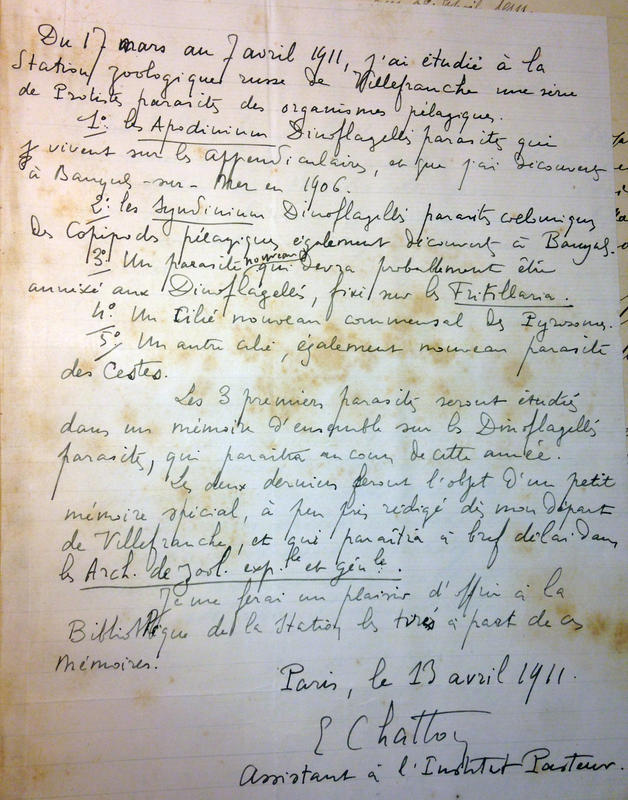 Du 17 mars au 7 avril 1911, j'ai étudié à la
Station zoologique russe de Villefranche une série
de Protistes parasites des organismes pélagiques.
1º. les Apodinium Dinoflagellés parasites qui
vivent sur les appendiculaires, et que j'ai découverts
à Banyuls-sur-Mer en 1906.
2º. les Syndinium Dinoflagellés parasites coelomiques
des Copépodes pélagiques également découverts à Banyuls.
3º. Un parasite nouveau qui devra probablement être
annexé aux Dinoflagellés, fixé sur les Fritillaria.
4º. Un Cilié nouveau commensal des Pyrosomes.
5º. Un autre cilié, également nouveau parasite
des Cestes.
Les 3 premiers parasites seront étudiés
dans un mémoire d'ensemble sur les Dinoflagellés
parasites, qui paraîtra au cours de cette année.
Les deux derniers feront l'objet d'un petit
mémoire spécial, à peu près rédigé dès mon départ
de Villefranche, et qui paraîtra à bref délai dans
les Arch. de Zool. exp.le et géń.le.
Je me ferai un plaisir d'offrir à la
Bibliothèque de la Station les tirés à part de ces
mémoires.
Paris, le 13 avril 1911.
E Chatton
Assistant à l'Institut Pasteur.